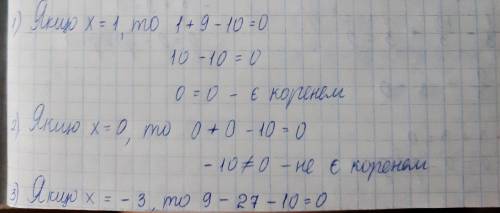 1) Якщо x = 1, то 1 + 9 - 10 = 0
10 - 10 = 0
0 = 0 - є коренем
2) Якщо x = 0, то 0 + 0 - 10 = 0
- 10 ≠ 0 - не є коренем
3) Якщо x = - 3, то 9 - 27 - 10 = 0